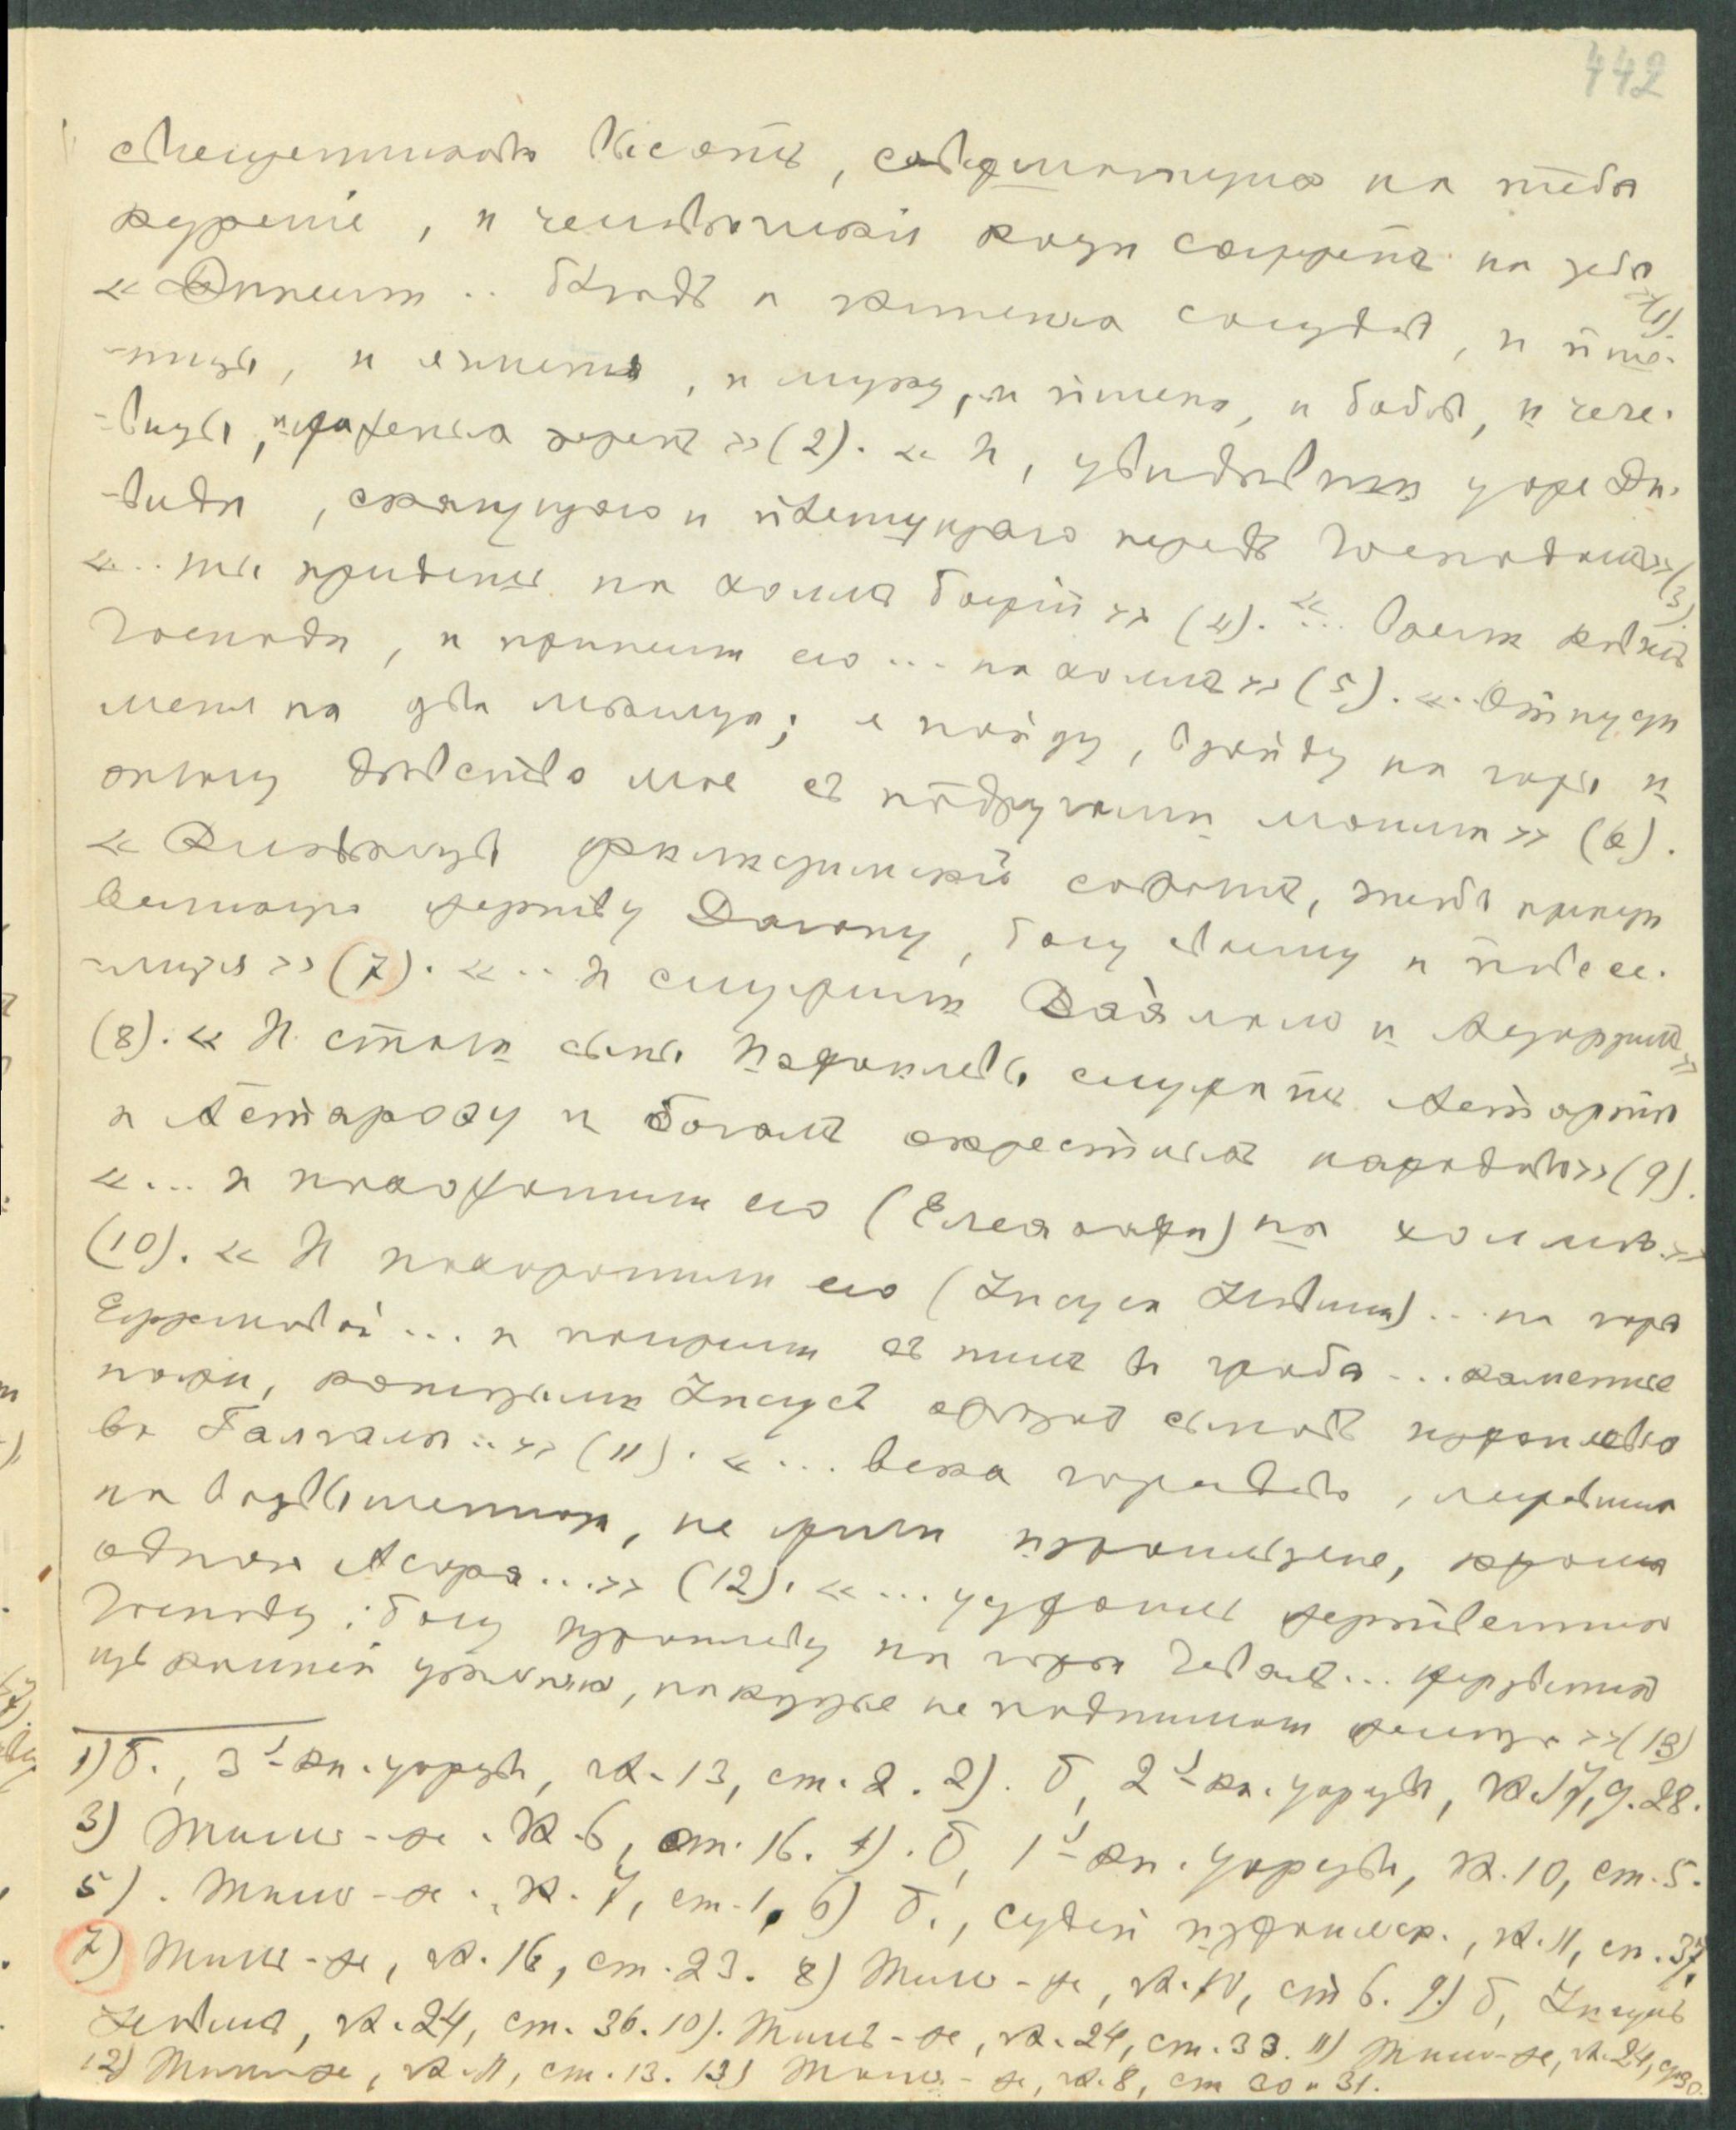 442
священниковъ высотъ, совершающихъ на тебѣ
куреніе, и человѣческія кости сожжетъ на тебѣ» (1).
« Принесли .. блюдъ и глиненыхъ сосудовъ, и пше-
-ницы, и ячменя, и муки, и пшена, и бобовъ, и чече-
-вицы, и жареныхъ зеренъ » (2). « И, увидѣвши царя Да-
-вида, скачущаго и пляшущаго передъ Господомъ» (3).
«... ты придешь на холмъ божій » (4). «... взяли ковчегъ
Господа, и принесли его ... на холмъ » (5). « Отпусти
меня на два мѣсяца; я пойду, взойду на горы и
оплачу дѣвство мое съ подругами моими » (6).
« Владѣльцы филистимскіе собрались, чтобы принести
великую жертву Дагону, богу своему и повесе-
-литься » (7). «... И служили Вааламъ и Астартамъ»
(8). « И стали сыны Израилевы служить Астартѣ
и Астароѳу и богамъ окрестныхъ народовъ» (9).
«... и похоронили его (Елеазара) на холмѣ»
(10). « И похоронили его (Іисуса Навина)... на горѣ
Ефремовой ... и положили съ нимъ въ гробъ ... каменные
ножи, которыми Іисусъ обрѣзалъ сыновъ израилевыхъ
въ Галгалахъ ..» (11). «... всѣхъ городовъ, лежавшихъ
на возвышенности, не жгли израильтяне, кромѣ
одного Асора ...» (12). «... устроилъ жертвенникъ
Господу, богу израилеву на горѣ Гевалъ ... жертвенникъ
изъ камней цѣльныхъ, на которые не поднимали желѣза » (13)
1) б., 3я кн. царствъ, гл. 13, ст. 2. 2). б, 2я кн. царствъ, гл. 17, ст. 28.
3) Тамъ-же. гл. 6, ст. 16. 4). б, 1я кн. царствъ, гл. 10, ст. 5.
5). Тамъ-же, гл. 7, ст. 1. 6) б., судей израилск., гл. 11, ст. 37.
7) Тамъ-же, гл. 16, ст. 23. 8) Тамъ-же, гл. 10, ст 6. 9) б, Іисуса
Навина, гл. 24, ст. 36. 10). Тамъ-же, гл. 24, ст. 33. 11) Тамъ-же, гл. 24, ст 30.
12) Тамъ-же, гл. 11, ст. 13. 13) Тамъ-же, гл. 8, ст 30 и 31.